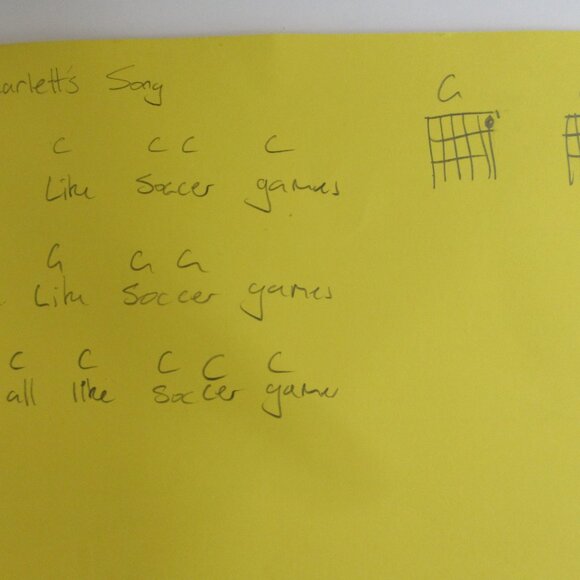 arlett's Song
C C C C
Like Soccer games
G G G
Like Soccer games
C C C C C
all like Soccer game
G
1